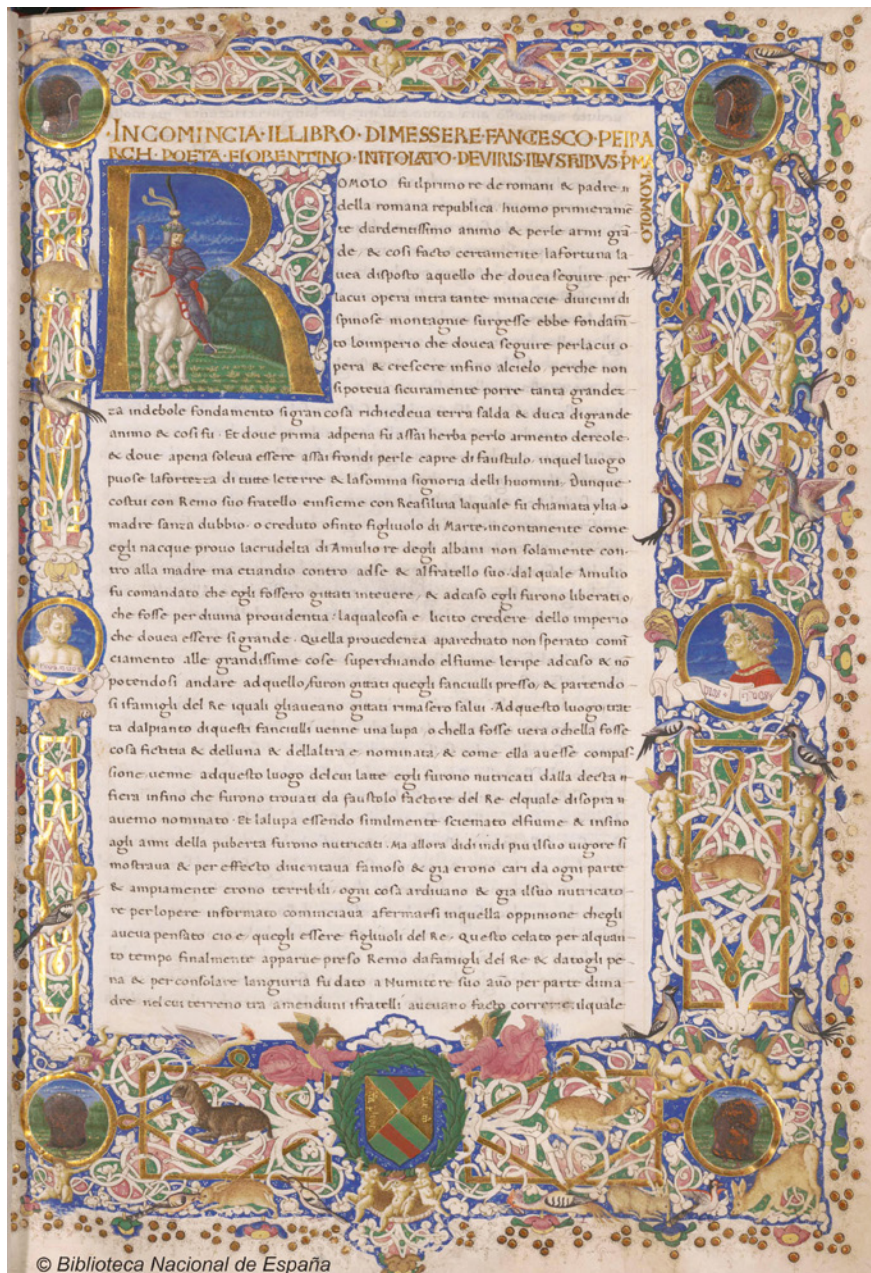 ·INCOMINCIA·ILLIBRO·DIMESSERE·FANCESCO·PETRA
RCH·POETA·FIORENTINO·INTITOLATO·DEVIRIS·ILVSTRIBVS·PMA
ROMOLO
ROMOLO fu ilprimo re de romani & padre
della romana republica huomo primieramē
te dardentissimo animo & perle armi grā
de, & cosi facto certamente lafortuna la
uea disposto aquello che douea seguire per
lacui opera intra tante minaccie diuicini di
spinose montagnie surgesse ebbe fondam̄
to loimperio che douea seguire perlacui o
pera & crescere infino alcielo. perche non
sipoteua sicuramente porre tanta grandez-
za indebole fondamento sigran cosa richiedeua terra salda & duca digrande
animo & cosi fu · Et doue prima adpena fu assai herba perlo armento dercole·
& doue apena soleua essere assai frondi perle capre di faustulo· inquel luogo
puose lafortezza di tutte leterre & lasomma signoria delli huomini· Dunque
costui con Remo suo fratello einsieme con Reasiluia laquale fu chiamata ylia
madre sanza dubbio· o creduto ofinto figliuolo di Marte·incontanente come
egli nacque prouo lacrudelta di Amulio re degli albani non solamente con-
tro alla madre ma etiandio contro adse & alfratello suo· dal quale Amulio
fu comandato che egli fossero gittati inteuere, & adcaso egli furono liberati o
che fosse per diuina prouidentia: laqualcosa e licito credere dello imperio
che douea essere sigrande· Quella prouedenza aparechiato non sperato comī
ciamento alle grandissime cose superchiando elfiume leripe adcaso & nō
potendosi andare adquello, furon gittati quegli fanciulli presso, & partendo-
si ifamigli del Re iquali gliaueano gittati rimasero salui · Adquesto luogo trat
ta dalpianto diquesti fanciulli uenne una lupa, o chella fosse uera o chella fosse
cosa fictitia & delluna & dellaltra e nominata, & come ella auesse compas-
sione uenne adquesto luogo delcui latte egli furono nutricati dalla decta
fiera infino che furono trouati da faustolo factore del Re elquale disopra
auemo nominato· Et lalupa essendo similmente sciemato elfiume & infino
agli anni della puberta furono nutricati · Ma allora didi indi piu ilsuo uigore si
mostraua & per effecto diuentaua famoso & gia erono cari da ogni parte
& ampiamente erono terribili, ogni cosa ardiuano & gia ilsuo nutricato-
re perlopere informato cominciaua afermarsi inquella oppinione chegli
aueua pensato cio e, quegli essere figliuoli del Re· Questo celato per alquan-
to tempo finalmente apparue preso Remo dafamigli del Re & datogli pe-
na & per consolare langiuria fu dato a Numitore suo auo per parte dima-
dre nelcui terreno tra amenduni ifratelli aueuano facto correre, ilquale
© Biblioteca Nacional de España